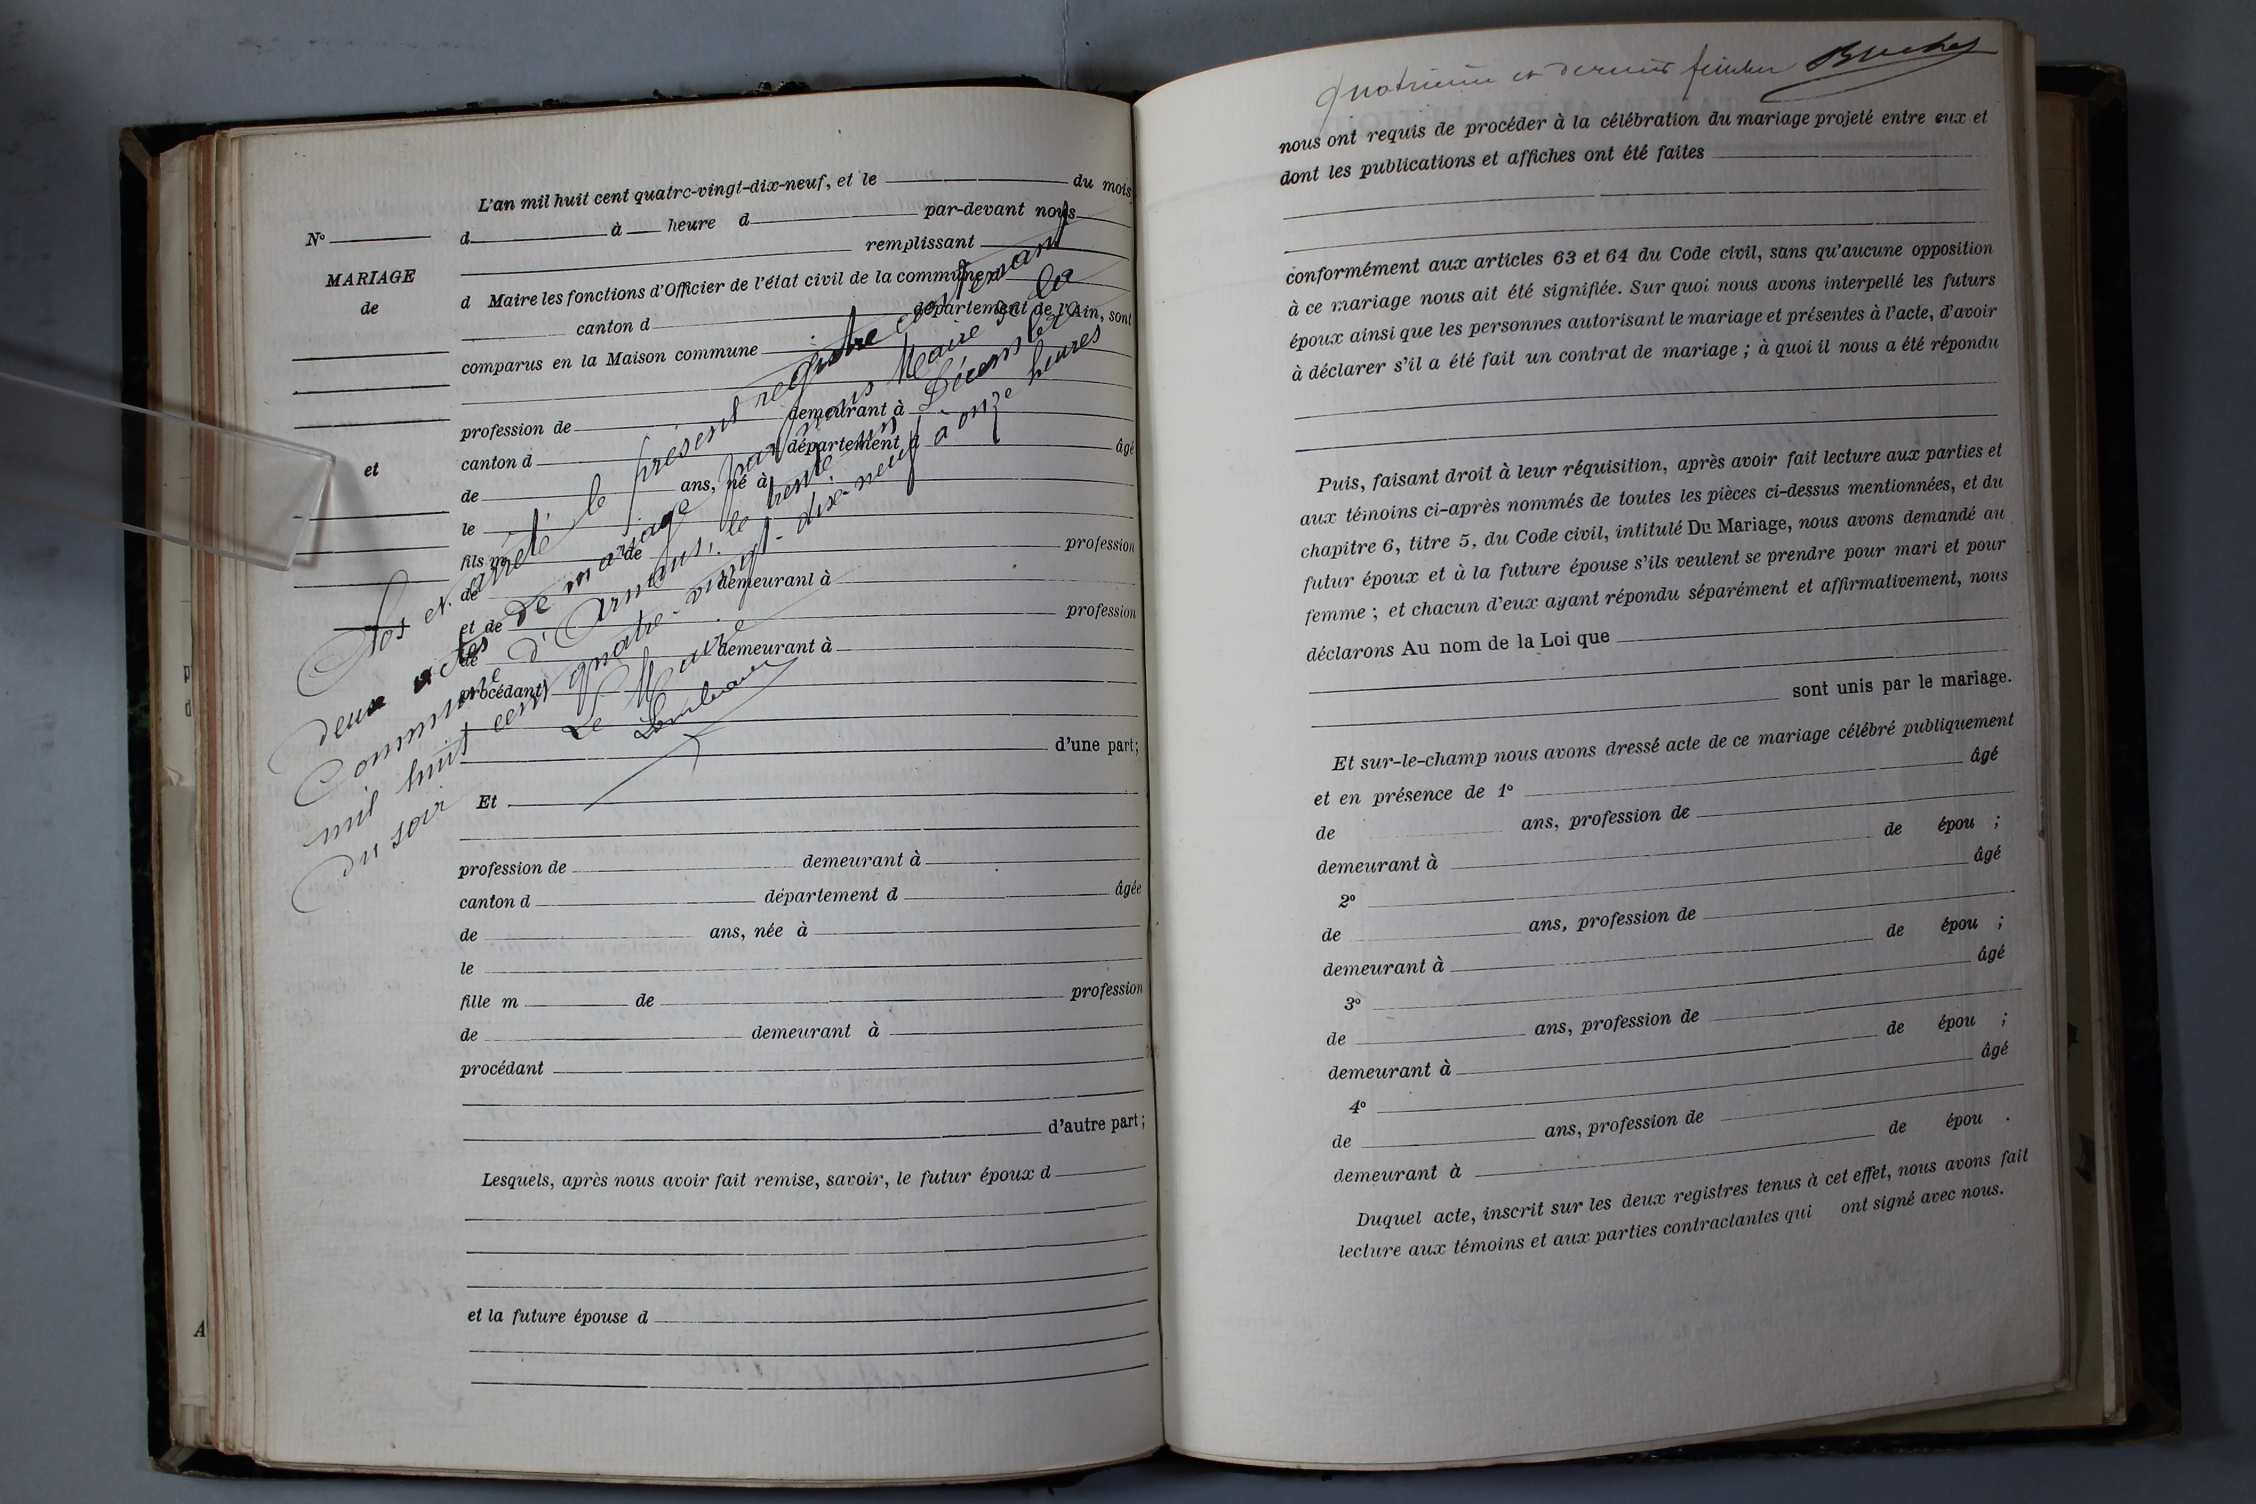 L'an mil huit cent quatre-vingt-dix-neuf, et le du mois
d à heure d par-devant nous
remplissant
d Maire les fonctions d'Officier de l'état civil de la commune d
canton d département de l'Ain, sont
comparus en la Maison commune
profession de demeurant à
canton d département d âgé
de ans, né à
le
fils m de profession
de demeurant à
et de profession
de demeurant à
procédant
d'une part;
N°
MARIAGE
de
et
Clos et arrêté le présent registre contenant
deux actes de mariage par nous Maire de la
Commune d'Arnans, le trente un Décembre
mil huit cent quatre-vingt-dix-neuf à onze heures
du soir
Le Maire
Et
profession de demeurant à
canton d département d âgée
de ans, née à
le
fille m de profession
de demeurant à
procédant
d'autre part;
Lesquels, après nous avoir fait remise, savoir, le futur époux d
et la future épouse d
p
d
A
Quatrième et dernier feuillet
nous ont requis de procéder à la célébration du mariage projeté entre eux et
dont les publications et affiches ont été faites
conformément aux articles 63 et 64 du Code civil, sans qu'aucune opposition
à ce mariage nous ait été signifiée. Sur quoi nous avons interpellé les futurs
époux ainsi que les personnes autorisant le mariage et présentes à l'acte, d'avoir
à déclarer s'il a été fait un contrat de mariage; à quoi il nous a été répondu
Puis, faisant droit à leur réquisition, après avoir fait lecture aux parties et
aux témoins ci-après nommés de toutes les pièces ci-dessus mentionnées, et du
chapitre 6, titre 5, du Code civil, intitulé Du Mariage, nous avons demandé au
futur époux et à la future épouse s'ils veulent se prendre pour mari et pour
femme; et chacun d'eux ayant répondu séparément et affirmativement, nous
déclarons Au nom de la Loi que
sont unis par le mariage.
Et sur-le-champ nous avons dressé acte de ce mariage célébré publiquement
et en présence de 1° âgé
de ans, profession de
demeurant à de épou ;
2° âgé
de ans, profession de
demeurant à de épou ;
3° âgé
de ans, profession de
demeurant à de épou ;
4° âgé
de ans, profession de
demeurant à de épou .
Duquel acte, inscrit sur les deux registres tenus à cet effet, nous avons fait
lecture aux témoins et aux parties contractantes qui ont signé avec nous.